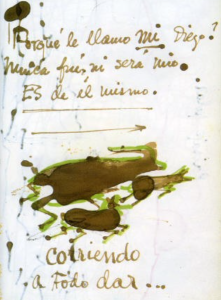 Porqué le llamo Mi Diego?
Nunca fué, ni será mio.
Es de él mismo.
corriendo
a todo dar...